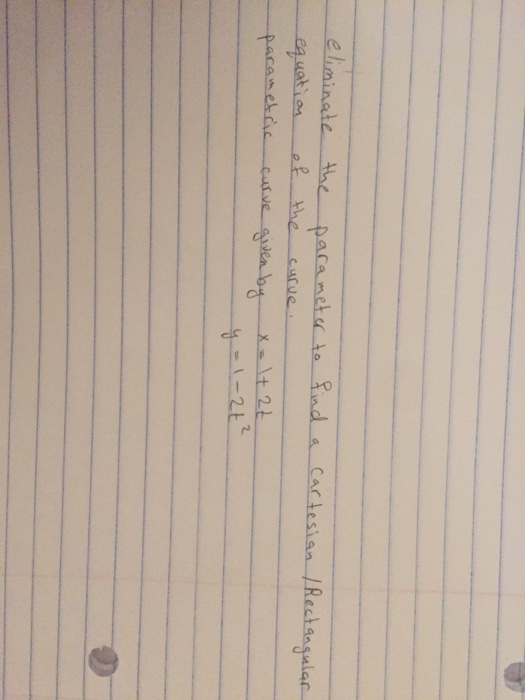 eliminate the parameter to find a cartesian / Rectangular
equation of the curve.
parametric curve given by x = 1 + 2t
y = 1 - 2t²